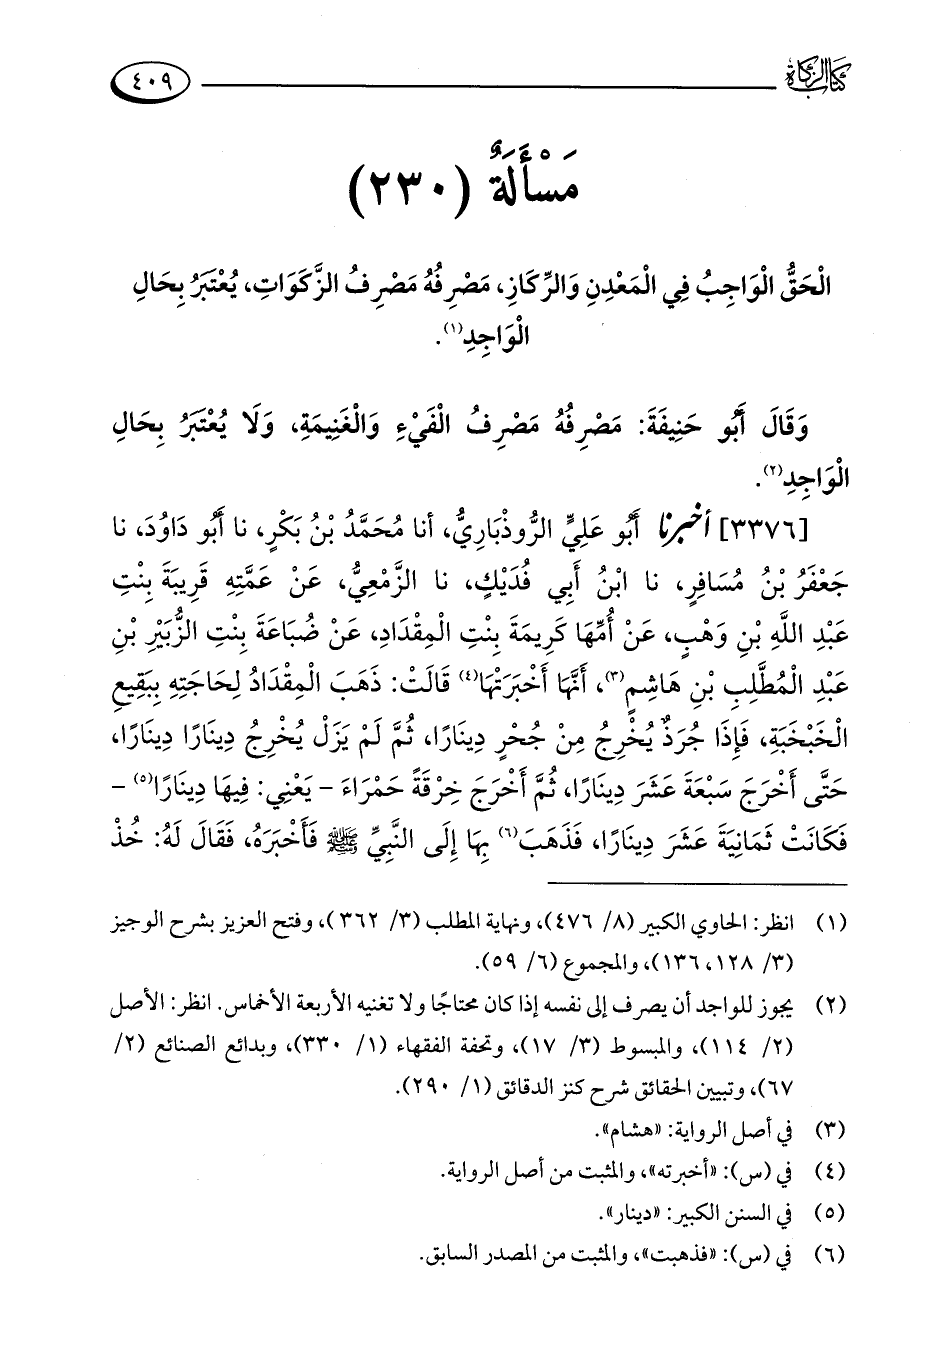 كتاب الزكاة
٤٠٩
مَسْأَلَةٌ (٢٣٠)
الْحَقُّ الْوَاجِبُ فِي الْمَعْدِنِ وَالرِّكَازِ، مَصْرِفُهُ مَصْرِفُ الزَّكَوَاتِ، يُعْتَبَرُ بِحَالِ
الْوَاجِدِ(١).
وَقَالَ أَبُو حَنِيفَةَ: مَصْرِفُهُ مَصْرِفُ الْفَيْءِ وَالْغَنِيمَةِ، وَلَا يُعْتَبَرُ بِحَالِ
الْوَاجِدِ(٢).
[٣٣٧٦] أخبرنا أَبُو عَلِيٍّ الرُّوذْبَارِيُّ، أنا مُحَمَّدُ بْنُ بَكْرٍ، نا أَبُو دَاوُدَ، نا
جَعْفَرُ بْنُ مُسَافِرٍ، نا ابْنُ أَبِي فُدَيْكٍ، نا الزَّمْعِيُّ، عَنْ عَمَّتِهِ قَرِيبَةَ بِنْتِ
عَبْدِ اللَّهِ بْنِ وَهْبٍ، عَنْ أُمِّهَا كَرِيمَةَ بِنْتِ الْمِقْدَادِ، عَنْ ضُبَاعَةَ بِنْتِ الزُّبَيْرِ بْنِ
عَبْدِ الْمُطَّلِبِ بْنِ هَاشِمٍ(٣)، أَنَّهَا أَخْبَرَتْهَا(٤) قَالَتْ: ذَهَبَ الْمِقْدَادُ لِحَاجَتِهِ بِبَقِيعِ
الْخَبْخَبَةِ، فَإِذَا جُرَذٌ يُخْرِجُ مِنْ جُحْرٍ دِينَارًا، ثُمَّ لَمْ يَزَلْ يُخْرِجُ دِينَارًا دِينَارًا،
حَتَّى أَخْرَجَ سَبْعَةَ عَشَرَ دِينَارًا، ثُمَّ أَخْرَجَ خِرْقَةً حَمْرَاءَ - يَعْنِي: فِيهَا دِينَارًا(٥) -
فَكَانَتْ ثَمَانِيَةَ عَشَرَ دِينَارًا، فَذَهَبَ(٦) بِهَا إِلَى النَّبِيِّ ﷺ فَأَخْبَرَهُ، فَقَالَ لَهُ: خُذْ
(١) انظر: الحاوي الكبير (٨/ ٤٧٦)، ونهاية المطلب (٣/ ٣٦٢)، وفتح العزيز بشرح الوجيز
(٣/ ١٢٨، ١٣٦)، والمجموع (٦/ ٥٩).
(٢) يجوز للواجد أن يصرف إلى نفسه إذا كان محتاجًا ولا تغنيه الأربعة الأخماس. انظر: الأصل
(٢/ ١١٤)، والمبسوط (٣/ ١٧)، وتحفة الفقهاء (١/ ٣٣٠)، وبدائع الصنائع (٢/
٦٧)، وتبيين الحقائق شرح كنز الدقائق (١/ ٢٩٠).
(٣) في أصل الرواية: «هشام».
(٤) في (س): «أخبرته»، والمثبت من أصل الرواية.
(٥) في السنن الكبير: «دينار».
(٦) في (س): «فذهبت»، والمثبت من المصدر السابق.